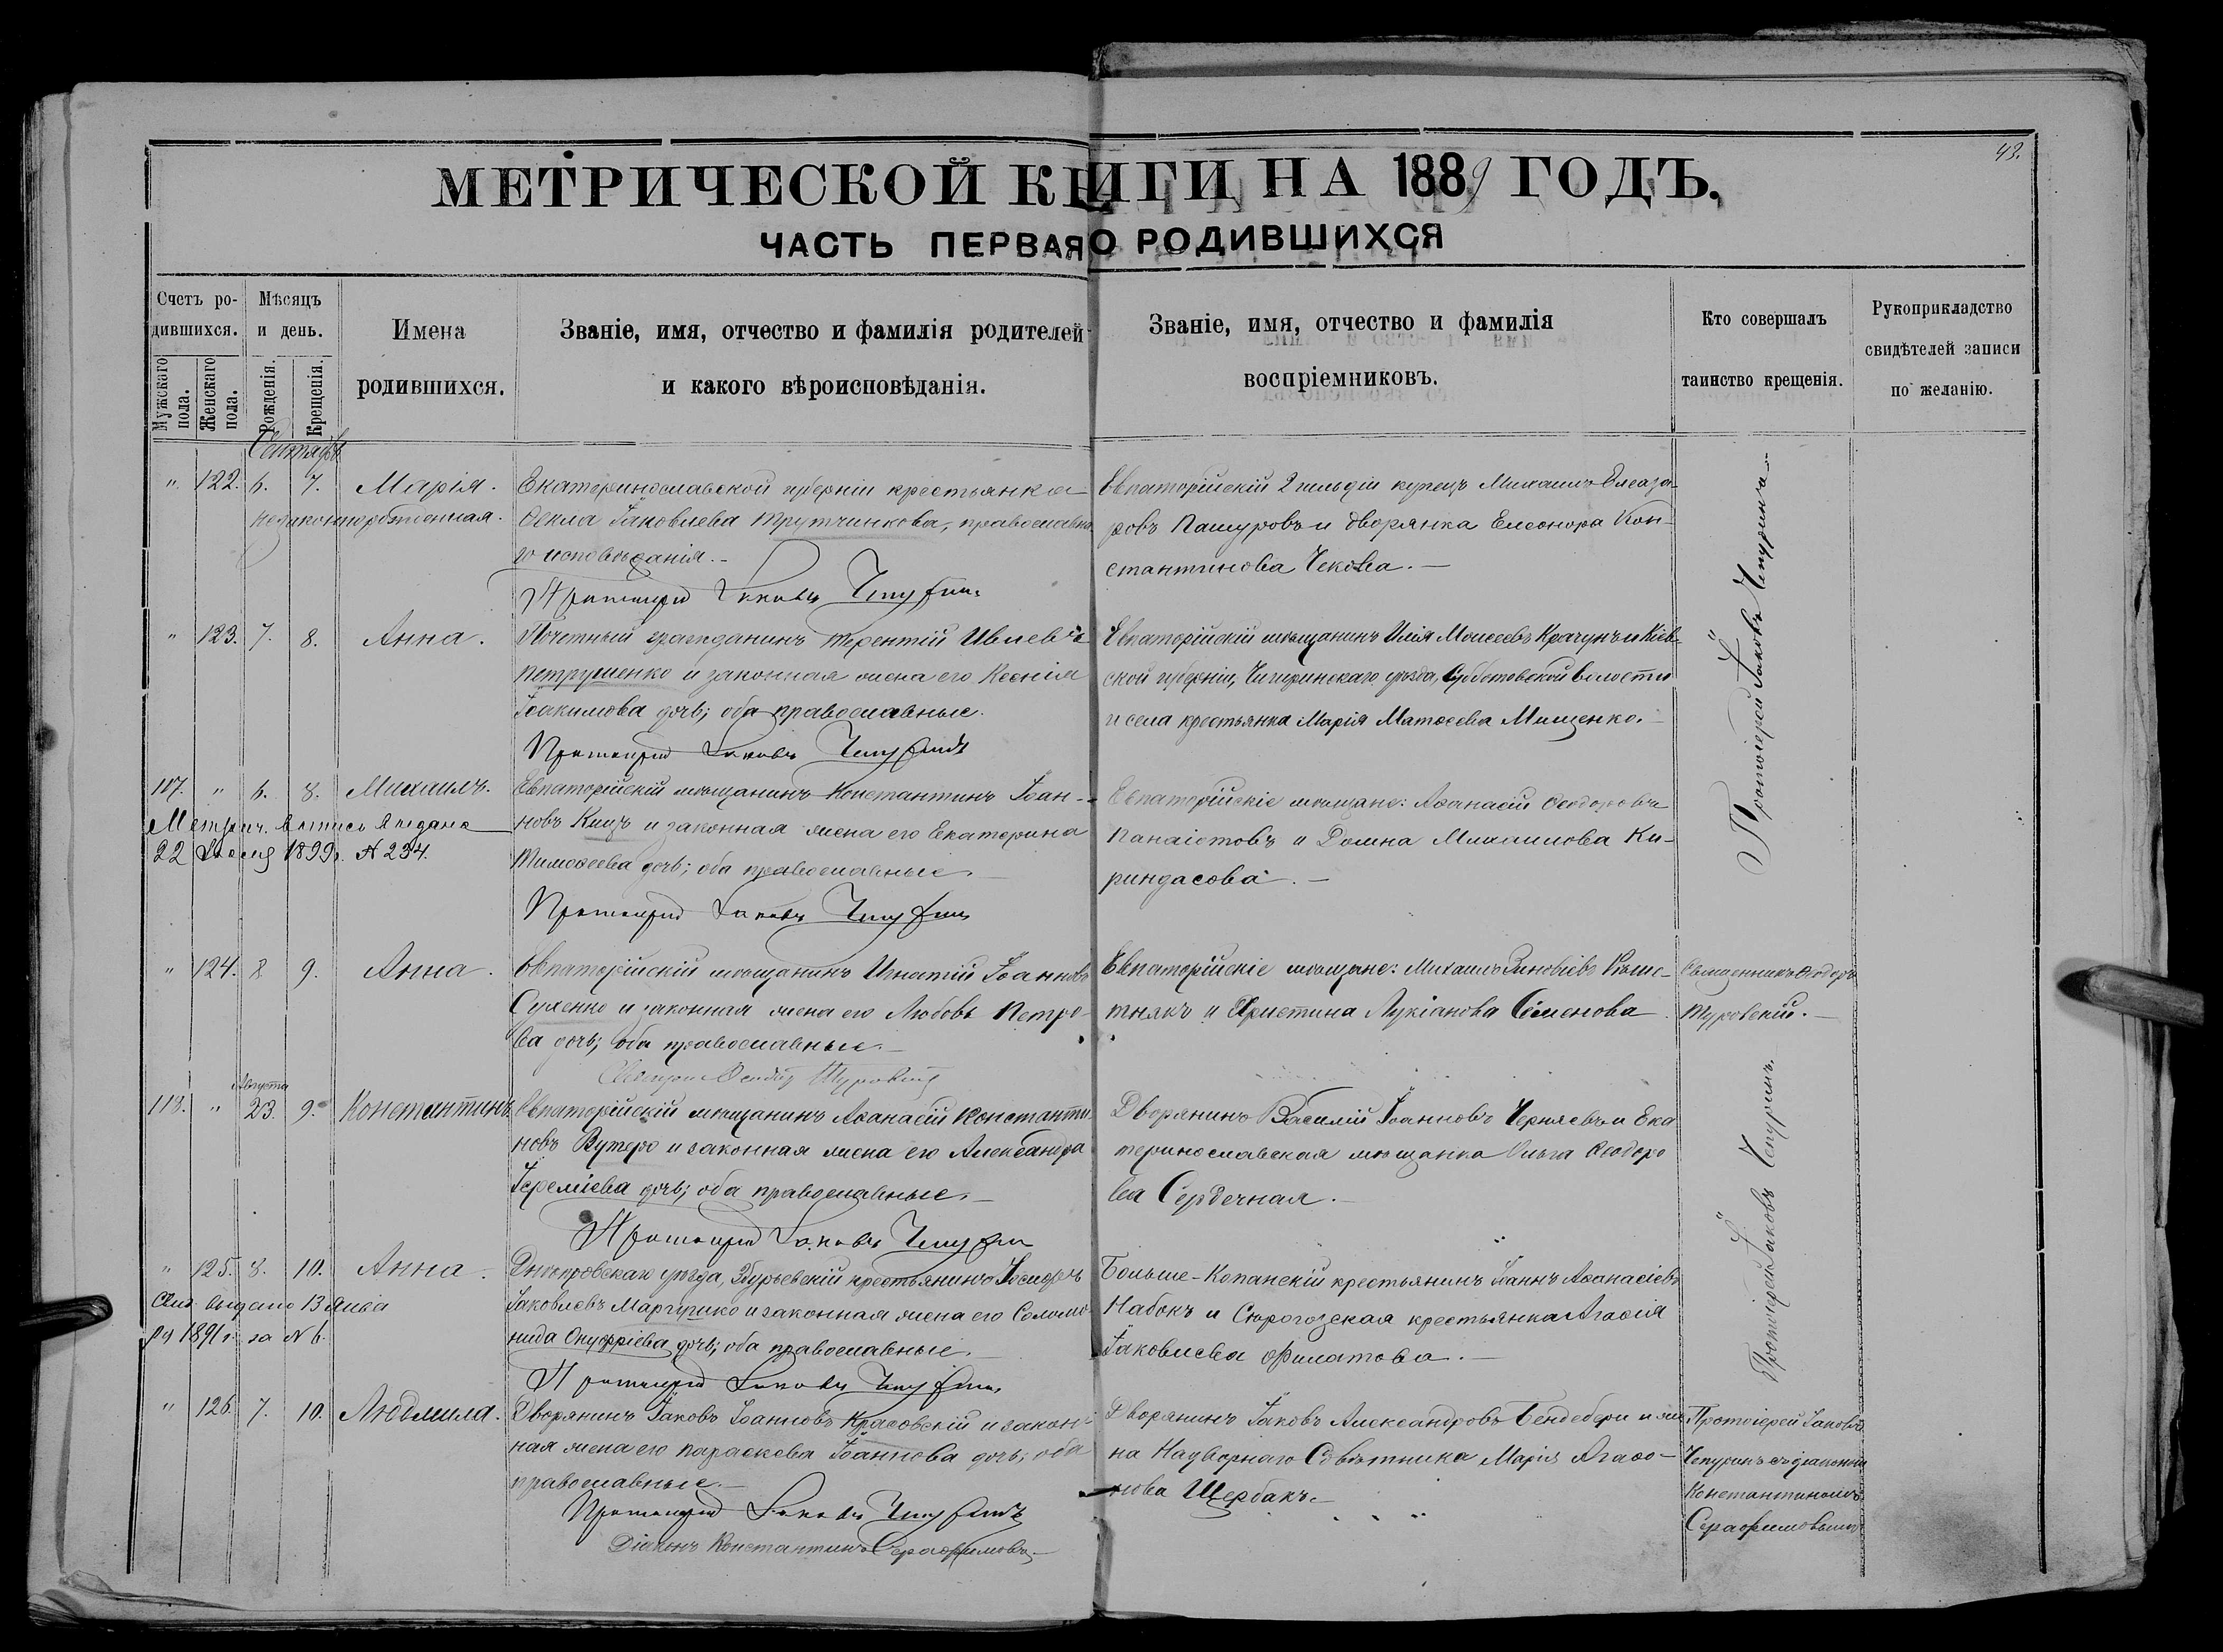 43.
МЕТРИЧЕСКОЙ КНИГИ НА 1889 ГОДЪ.
ЧАСТЬ ПЕРВАЯ О РОДИВШИХСЯ
Счетъ ро-
дившихся.
Мужскаго пола.
Женскаго пола.
Мѣсяцъ
и день.
Рожденія.
Крещенія.
Имена
родившихся.
Званіе, имя, отчество и фамилія родителей
и какого вѣроисповѣданія.
Званіе, имя, отчество и фамилія
воспріемниковъ.
Кто совершалъ
таинство крещенія.
Рукоприкладство
свидѣтелей записи
по желанію.
Сентябрь
" 122. 6. 7. Марія.
незаконнорожденная.
Екатеринославской губерніи крестьянка
Ѳекла Іаковлева Трутчинкова, православна
го исповѣданія.-
Протоіерей Іаковъ Чепуринъ
Евпаторійскій 2 гильдіи купецъ Михаилъ Елеаза-
ровъ Пашуровъ и дворянка Елеонора Кон-
стантинова Чекова.-
Протоіерей Іаковъ Чепуринъ.-
" 123. 7. 8. Анна.
Почетный гражданинъ Терентій Ивлевъ
Петрушенко и законная жена его Ксенія
Іоакимова дочь; оба православные.
Протоіерей Іаковъ Чепуринъ
Евпаторійскій мѣщанинъ Илія Моисеевъ Крачунъ и Кіев-
ской губерніи, Чигиринскаго уѣзда, Субботовской волости
и села крестьянка Марія Матѳеева Мищенко.-
107. " 6. 8. Михаилъ.
Метрич. выпись выдана
22 1899г. № 234.
Евпаторійскій мѣщанинъ Константинъ Іоан-
новъ Кицъ и законная жена его Екатерина
Тимоѳеева дочь; оба православные.-
Протоіерей Іаковъ Чепуринъ
Евпаторійскіе мѣщане: Аѳанасій Ѳеодоровъ
Панаіотовъ и Домна Михаилова Ки-
риндасова.-
" 124. 8 9. Анна.
Евпаторійскій мѣщанинъ Игнатій Іоанновъ
Сухенко и законная жена его Любовь Петро-
ва дочь; оба православные.-
Священ. Ѳеодоръ Туровскій
Евпаторійскіе мѣщане: Михаилъ Зиновіевъ
тнякъ и Христина Лукіанова Семенова
Священникъ Ѳеодоръ
Туровскій.-
Августа
118. " 23. 9. Константинъ.
Евпаторійскій мѣщанинъ Аѳанасій Константи-
новъ Вутеро и законная жена его Александра
Іереміева дочь; оба православные.-
Протоіерей Іаковъ Чепуринъ
Дворянинъ Василій Іоанновъ Черняевъ и Ека
теринославская мѣщанка Ольга Ѳеодоро
ва Сердечная.-
Протоіерей Іаковъ Чепуринъ.
" 125. 8. 10. Анна.
выдано 13
ря 1891 г. за № 6.
Днѣпровскаго уѣзда, Збурьевскій крестьянинъ Исидоръ
Іаковлевъ и законная жена его Соломо-
нида Онуфріева дочь; оба православные.-
Протоіерей Іаковъ Чепуринъ
Больше-Копанскій крестьянинъ Іоаннъ Аѳанасіевъ
Набокъ и Сѣрогозская крестьянка Агаѳія
Іаковлева Филатова.-
" 126 7. 10. Людмила.
Дворянинъ Іаковъ Іоанновъ Красовскій и закон-
ная жена его Параскева Іоаннова дочь; оба
православные.-
Протоіерей Іаковъ Чепуринъ
Діаконъ Константинъ Серафимовъ.-
Дворянинъ Іаковъ Александровъ Бендебери и же
на Надворнаго Совѣтника Марія Агаѳо-
нова Щербакъ.-
Протоіерей Іаковъ
Чепуринъ съ діакономъ
Константиномъ
Серафимовымъ